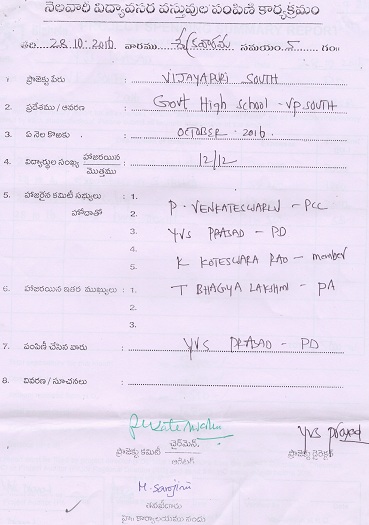 నెలవారీ విద్యావసర వస్తువుల పంపిణీ కార్యక్రమం
తేది. 28.10.2016. వారము శుక్రవారము సమయం గం॥
1. ప్రాజెక్టు పేరు : VIJAYAPURI SOUTH
2. ప్రదేశము / ఆవరణ : Govt High school - VP. SOUTH
3. ఏ నెల కొఱకు : OCTOBER - 2016.
4. విద్యార్థుల సంఖ్య హాజరయిన / మొత్తము : 12/12
5. హాజరైన కమిటీ సభ్యులు : 1.
హోదాతో 2. P. VENKATESWARLU - PCC
3. YVS PRASAD - PD
4.
5. K KOTESWARA RAO - member
6. హాజరయిన ఇతర ముఖ్యులు : 1. T BHAGYA LAKSHMI - PA
2.
3.
7. పంపిణీ చేసిన వారు : YVS PRASAD - PD
8. వివరణ / సూచనలు :
YVS Prasad
ప్రాజెక్టు కమిటీ చైర్‌మెన్ ప్రాజెక్టు డైరెక్టర్
M. Sarojini